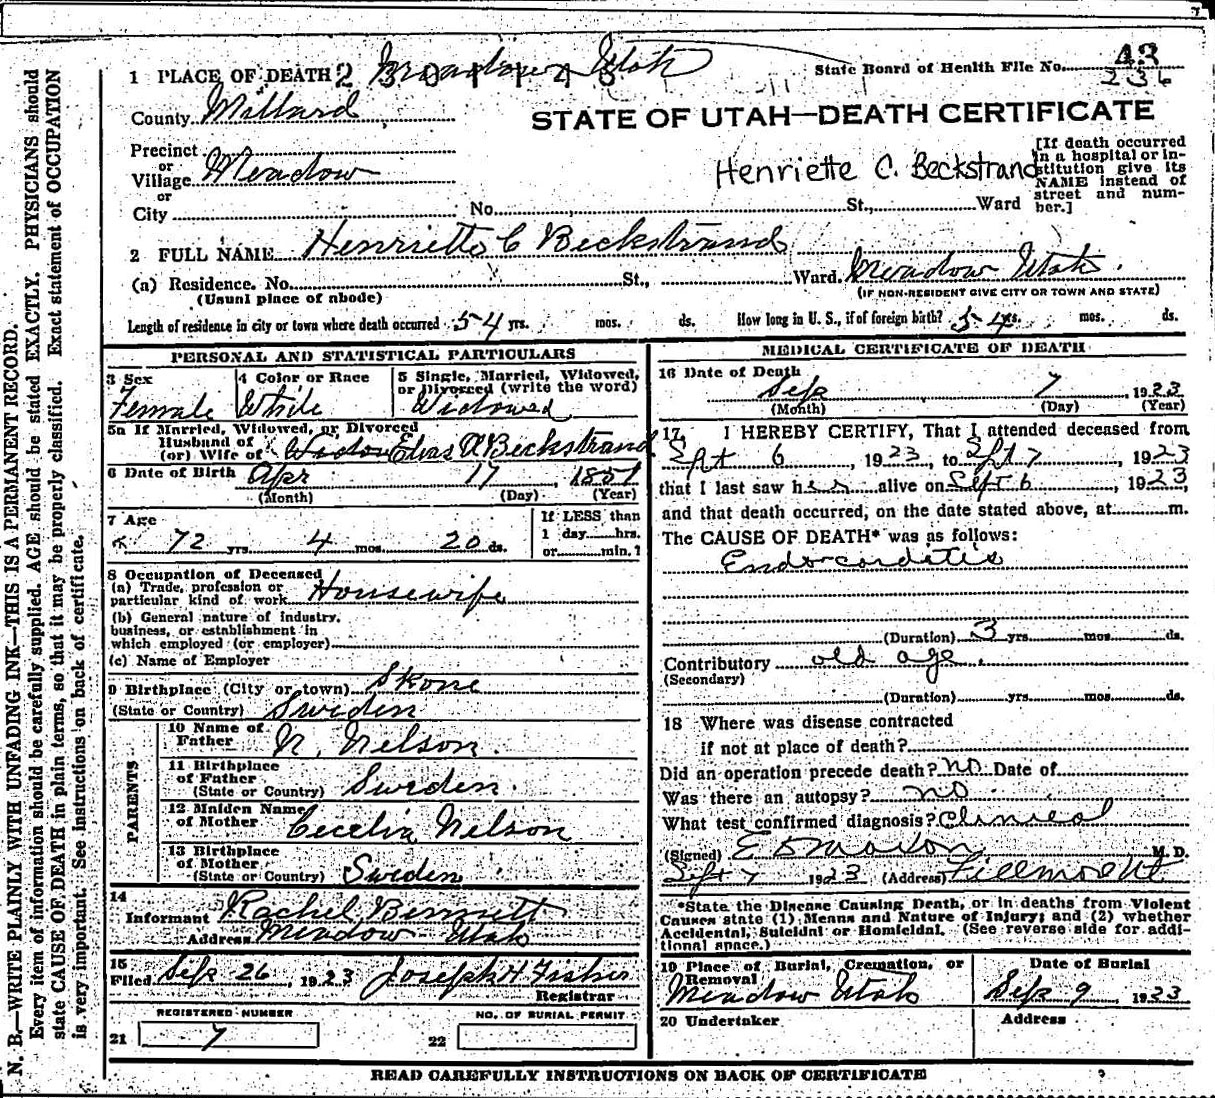 1 PLACE OF DEATH Meadow Utah
2301123
State Board of Health File No. 43
236
County Millard
STATE OF UTAH—DEATH CERTIFICATE
Precinct
or
Village Meadow
or
City No. St., Ward
Henriette C. Beckstrand
[If death occurred in a hospital or institution give its NAME instead of street and number.]
2 FULL NAME Henrietta C Beckstrand
(a) Residence. No. St., Ward. Meadow Utah.
(Usual place of abode) (IF NON-RESIDENT GIVE CITY OR TOWN AND STATE)
Length of residence in city or town where death occurred 54 yrs. mos. ds. How long in U. S., if of foreign birth? 54 yrs. mos. ds.
PERSONAL AND STATISTICAL PARTICULARS
3 Sex
Female
4 Color or Race
White
5 Single, Married, Widowed, or Divorced (write the word)
Widowed
5a If Married, Widowed, or Divorced
Husband of
(or) Wife of Elias A Beckstrand
6 Date of Birth Apr 17, 1851
(Month) (Day) (Year)
7 Age
72 yrs. 4 mos. 20 ds.
If LESS than
1 day hrs.
or min.?
8 Occupation of Deceased
(a) Trade, profession or
particular kind of work Housewife
(b) General nature of industry,
business, or establishment in
which employed (or employer)
(c) Name of Employer
9 Birthplace (City or town) Skone
(State or Country) Sweden
PARENTS
10 Name of
Father N. Nelson.
11 Birthplace
of Father
(State or Country) Sweden.
12 Maiden Name
of Mother Cecelia Nelson
13 Birthplace
of Mother
(State or Country) Sweden
14
Informant Rachel Bennett
Address Meadow Utah
15
Filed Sep 26, 1923 Joseph H Fisher
Registrar
REGISTERED NUMBER
21 7
NO. OF BURIAL PERMIT
22
MEDICAL CERTIFICATE OF DEATH
16 Date of Death
Sep 7, 1923
(Month) (Day) (Year)
17. I HEREBY CERTIFY, That I attended deceased from
Spt 6, 1923, to Spt 7, 1923
that I last saw her alive on Sept 6, 1923,
and that death occurred, on the date stated above, at m.
The CAUSE OF DEATH* was as follows:
Endocorditis
(Duration) 3 yrs. mos. ds.
Contributory old age.
(Secondary)
(Duration) yrs. mos. ds.
18 Where was disease contracted
if not at place of death?
Did an operation precede death? no Date of
Was there an autopsy? no
What test confirmed diagnosis? Clinical
(Signed) M. D.
Sept 7 1923 (Address) Fillmore Ut
*State the Disease Causing Death, or in deaths from Violent
Causes state (1) Means and Nature of Injury; and (2) whether
Accidental, Suicidal or Homicidal. (See reverse side for addi-
tional space.)
19 Place of Burial, Cremation, or
Removal
Meadow Utah
Date of Burial
Sep 9, 1923
20 Undertaker Address
READ CAREFULLY INSTRUCTIONS ON BACK OF CERTIFICATE
N. B.—WRITE PLAINLY WITH UNFADING INK—THIS IS A PERMANENT RECORD.
Every item of information should be carefully supplied. AGE should be stated EXACTLY. PHYSICIANS should
state CAUSE OF DEATH in plain terms, so that it may be properly classified. Exact statement of OCCUPATION
is very important. See instructions on back of certificate.